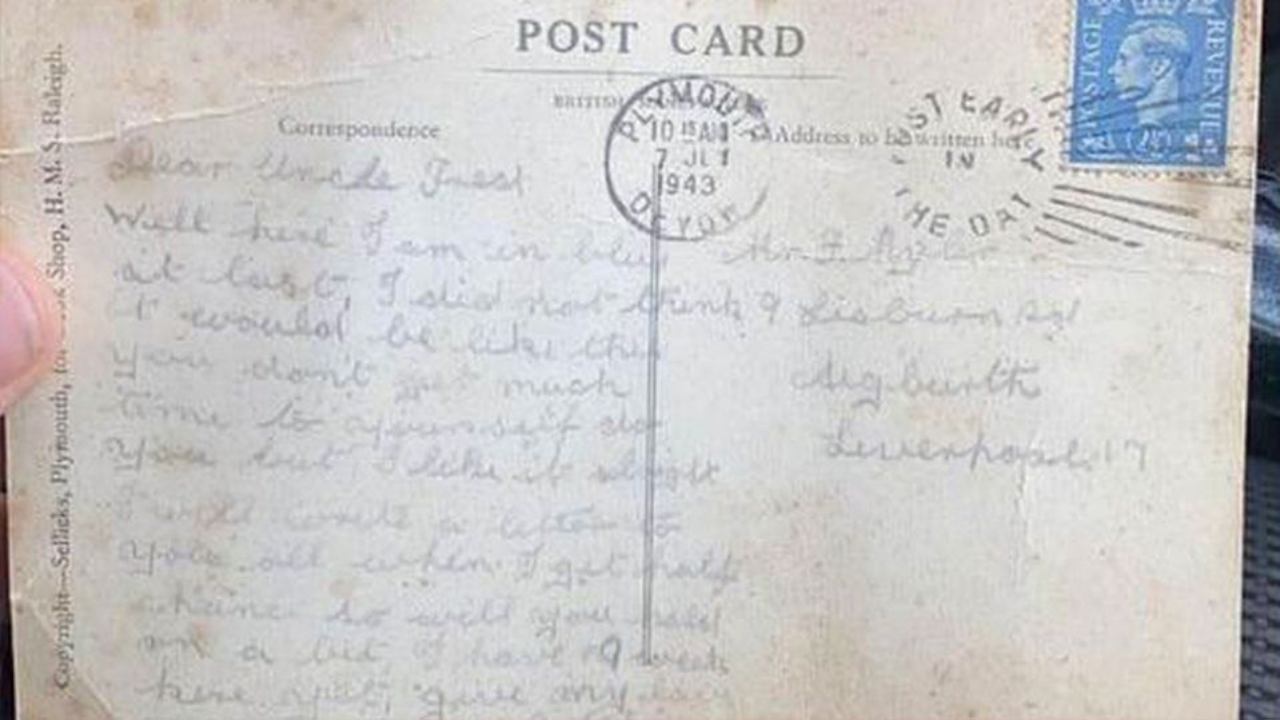 POST CARD
BRITISH
Correspondence
Address to be written here
PLYMOUTH
10 15 AM
7 JL
1943
DEVON
POST EARLY
IN
THE DAY
POSTAGE
REVENUE
Copyright—Sellicks, Plymouth, for Shop, H.M.S. Raleigh.
Dear Uncle
Well here I am in blue
at last, I did not think
it would be like this
you don't get much
time to yourself do
you but I like it alright
I will write a letter to
you all when I get half
chance so will you hold
on a bit, I have 9 week
here yet, give my
Mr
9 Lisburn Rd
Aigburth
Liverpool 17